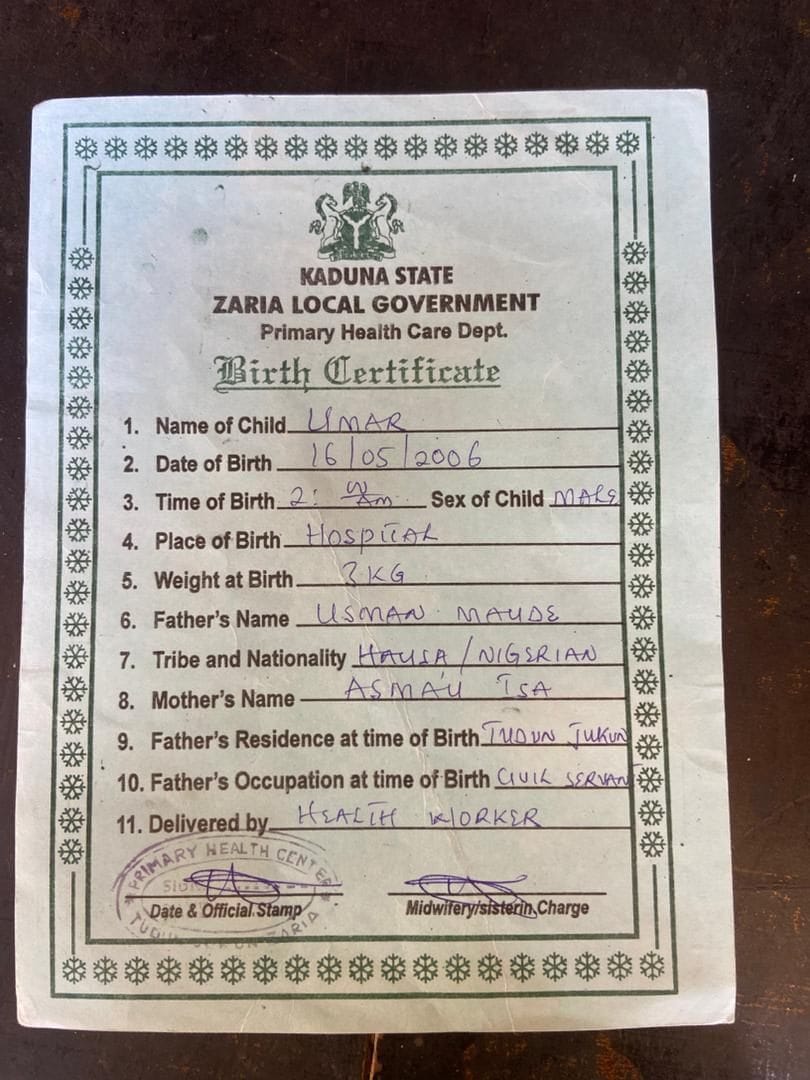 KADUNA STATE
ZARIA LOCAL GOVERNMENT
Primary Health Care Dept.
Birth Certificate
1. Name of Child UMAR
2. Date of Birth 16/05/2006
3. Time of Birth 2: Am Sex of Child MALE
4. Place of Birth HOSPITAL
5. Weight at Birth 3KG
6. Father's Name USMAN MAUDE
7. Tribe and Nationality HAUSA / NIGERIAN
8. Mother's Name ASMA'U ISA
9. Father's Residence at time of Birth TUDUN JUKUN
10. Father's Occupation at time of Birth CIVIL SERVANT
11. Delivered by HEALTH WORKER
PRIMARY HEALTH CENTER
Date & Official Stamp Midwifery/sisterin Charge
ZARIA